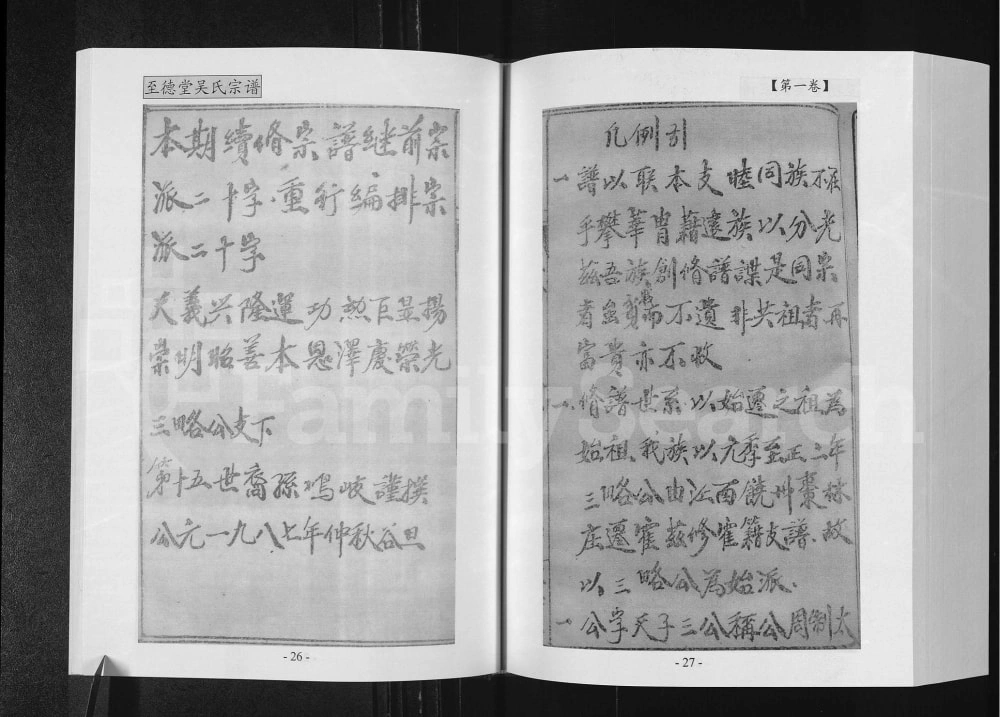 至德堂吴氏宗谱
本期續脩宗譜继前宗
派二十字·重行編排宗
派二十字
義兴隆運功勲巨显揚
崇明昭善本恩澤慶榮光
三略公支下
第十五世裔孫鸣岐謹撰
公元一九八七年仲秋谷旦
- 26 -
【第一卷】
凡例引
一譜以联本支睦同族不在
乎攀華胄藉遠族以分光
兹吾族創脩譜諜是同宗
者虽窮賤而不遺非共祖者再
富貴亦不收
一脩譜世系以始遷之祖為
始祖、我族以元季至正二年
三略公由江西饶州棗林
庄遷霍兹修霍籍支譜、故
以三略公為始派.
一公字天子三公稱公周制太
- 27 -
FamilySearch